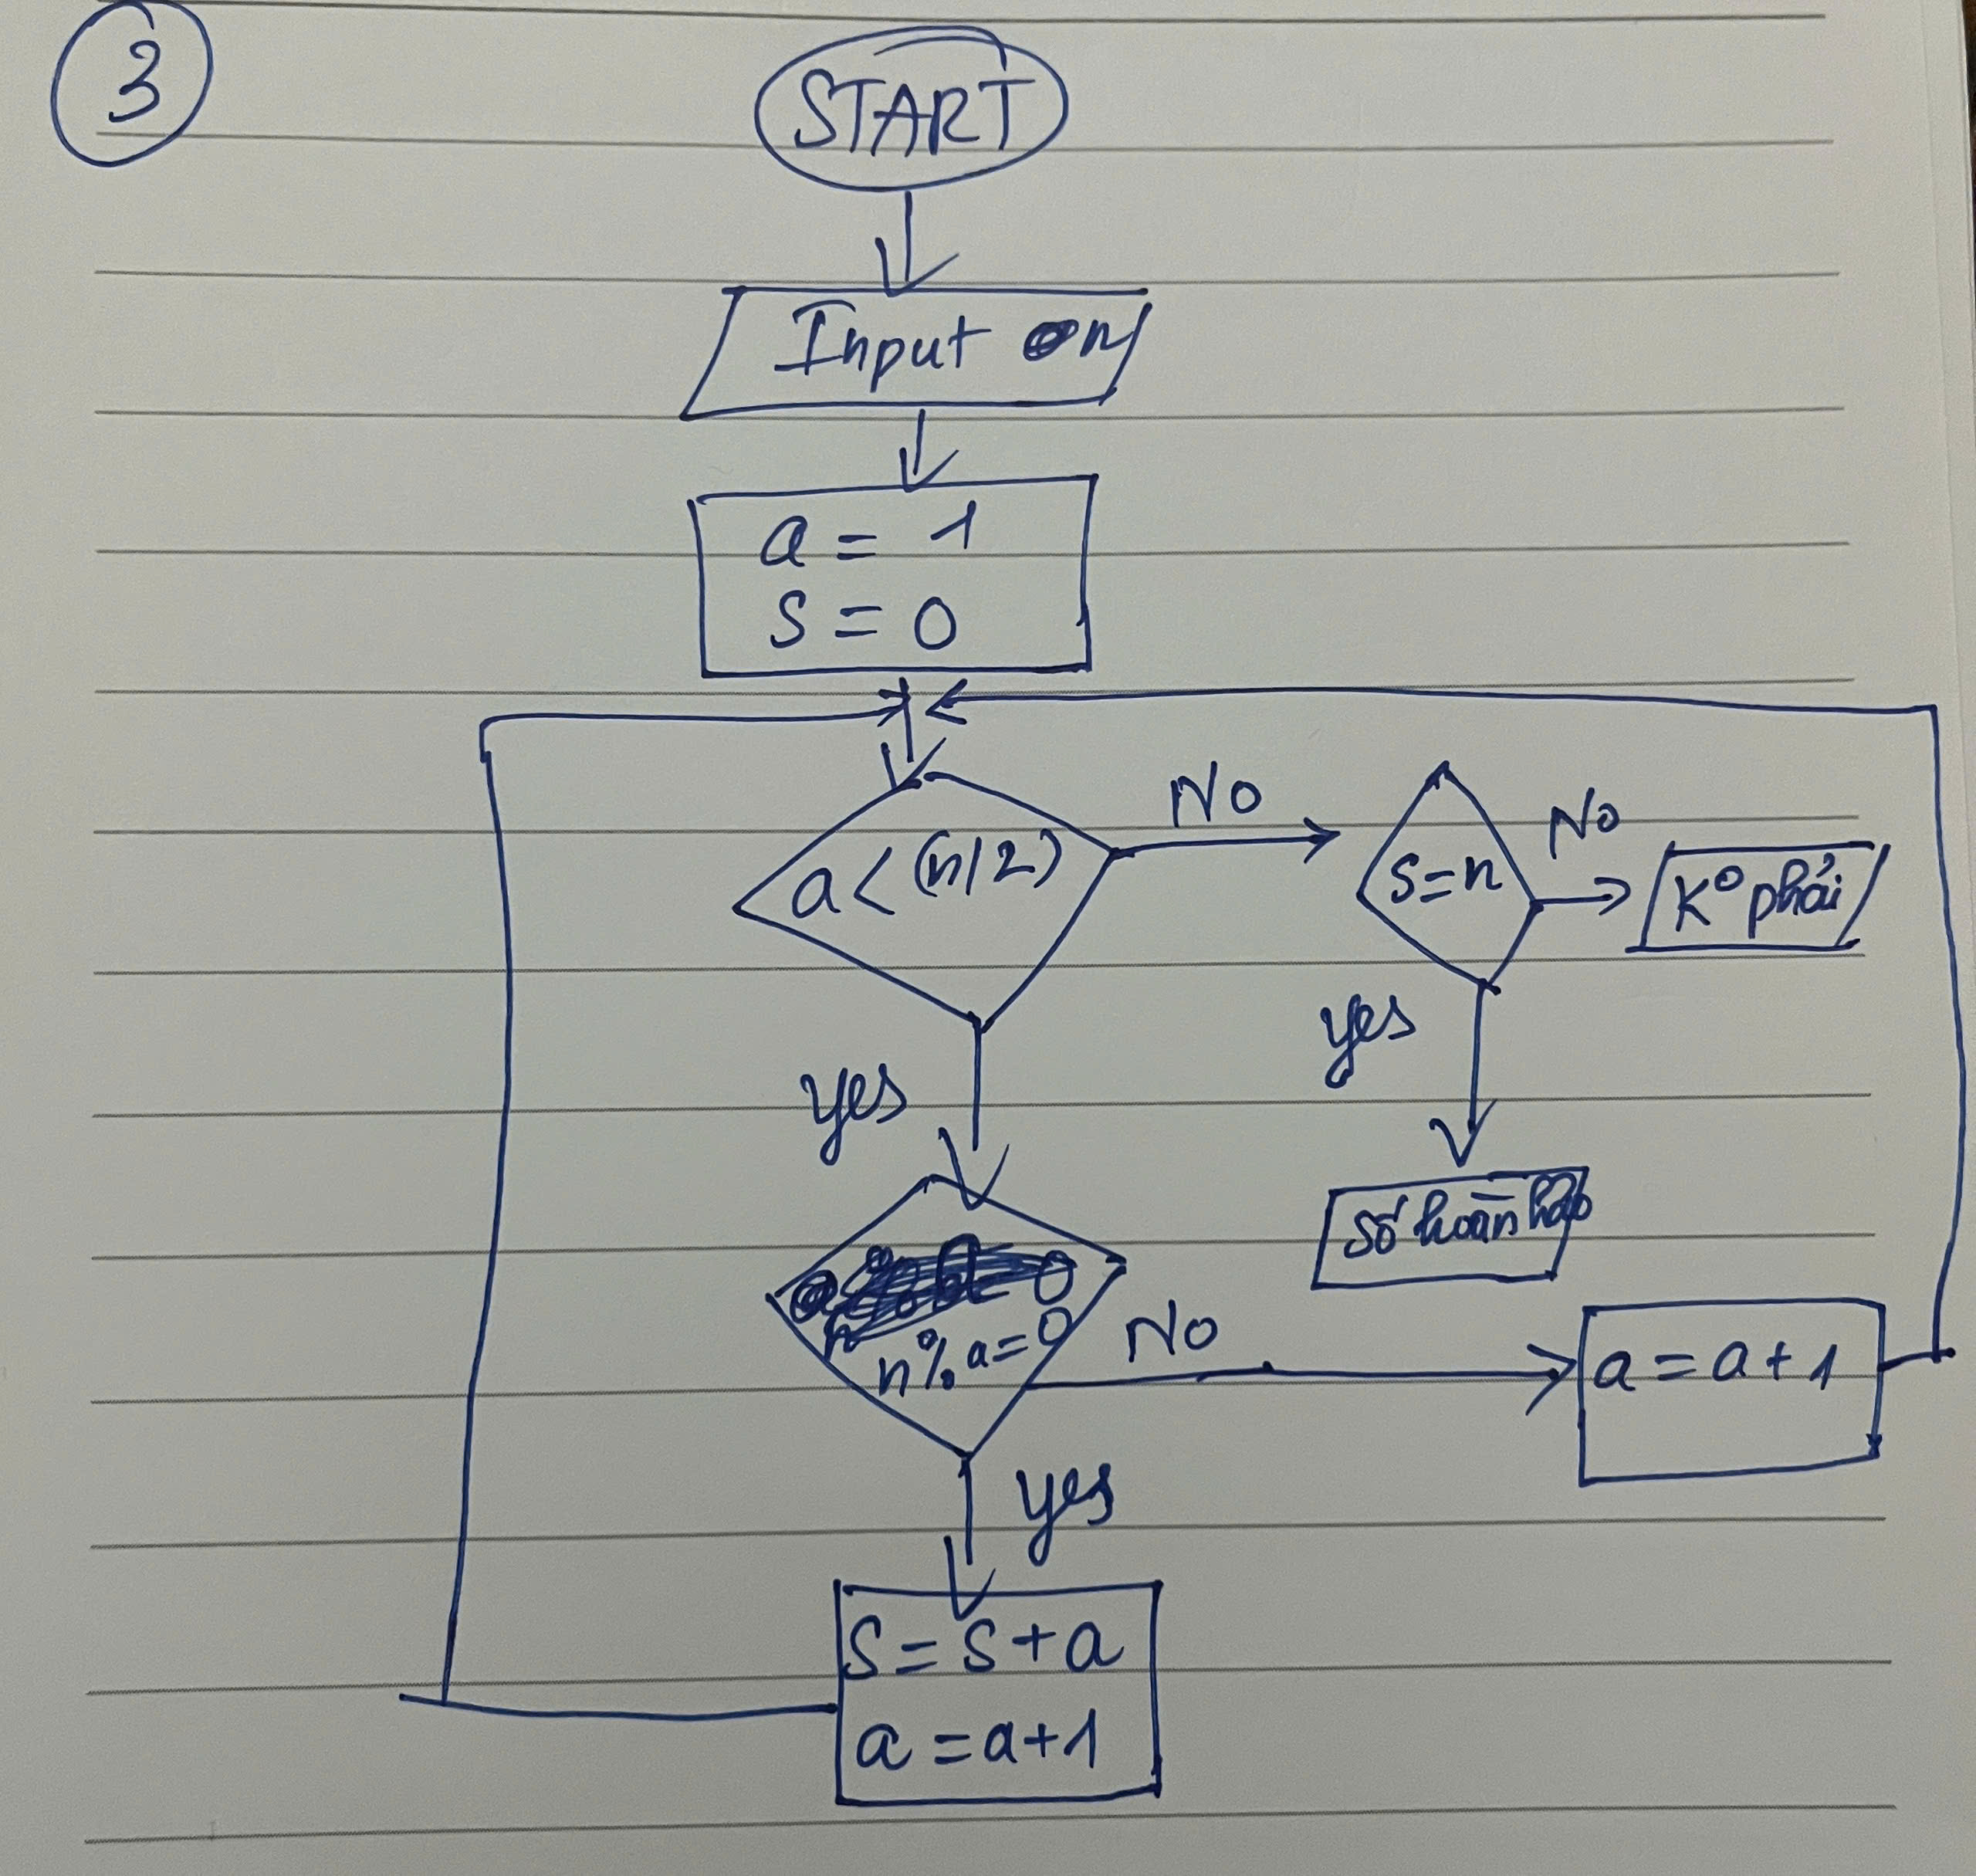 3
START
Input n
a = 1
S = 0
a < (n/2)
No
S=n
No
K° phải
yes
yes
số hoàn hảo
n%a=0
No
a = a + 1
yes
S = S + a
a = a+1